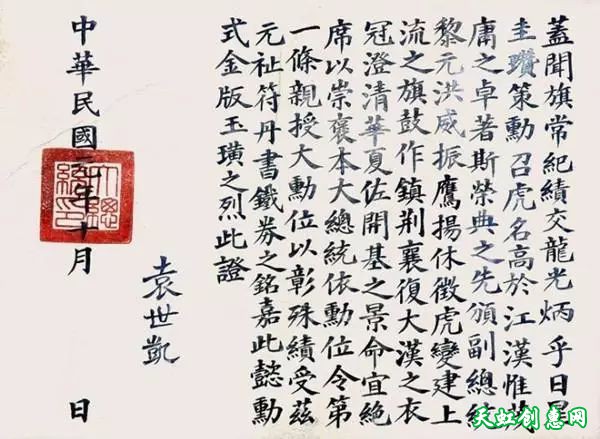 蓋聞旗常紀績交龍光炳乎日星
圭瓚策勳召虎名高於江漢惟茂
庸之卓著斯榮典之先頒副總統
黎元洪威振鷹揚休徵虎變建上
流之旗鼓作鎮荊襄復大漢之衣
冠澄清華夏佐開基之景命宜絶
席以崇褒本大總統依勳位令第
一條親授大勳位以彰殊績受茲
元祉符丹書鐵券之銘嘉此懿勳
式金版玉璜之烈此證
袁世凱
中華民國二年十月 日
大總統印
天虹创意网